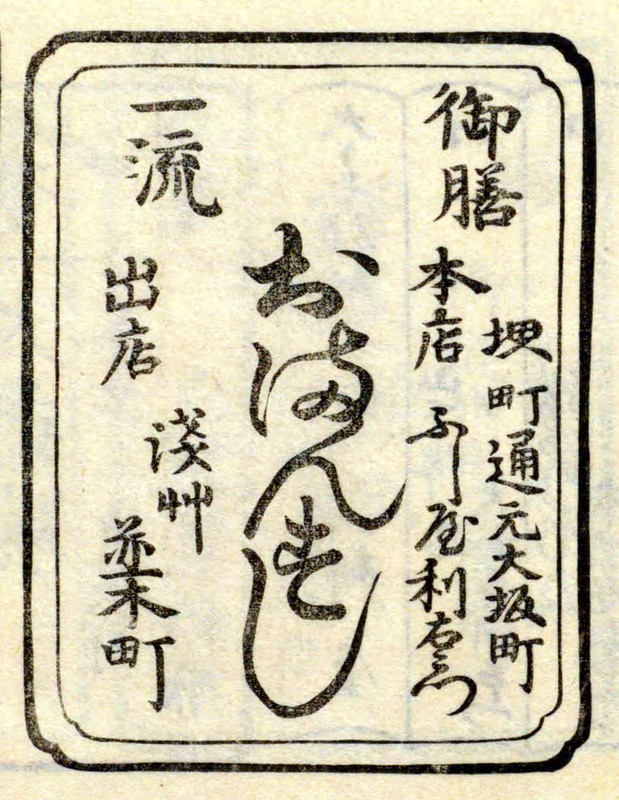 御膳
堺町通元大坂町
本店 ふじ屋利右衛門
おまんすし
一流
出店
淺艸
並木町